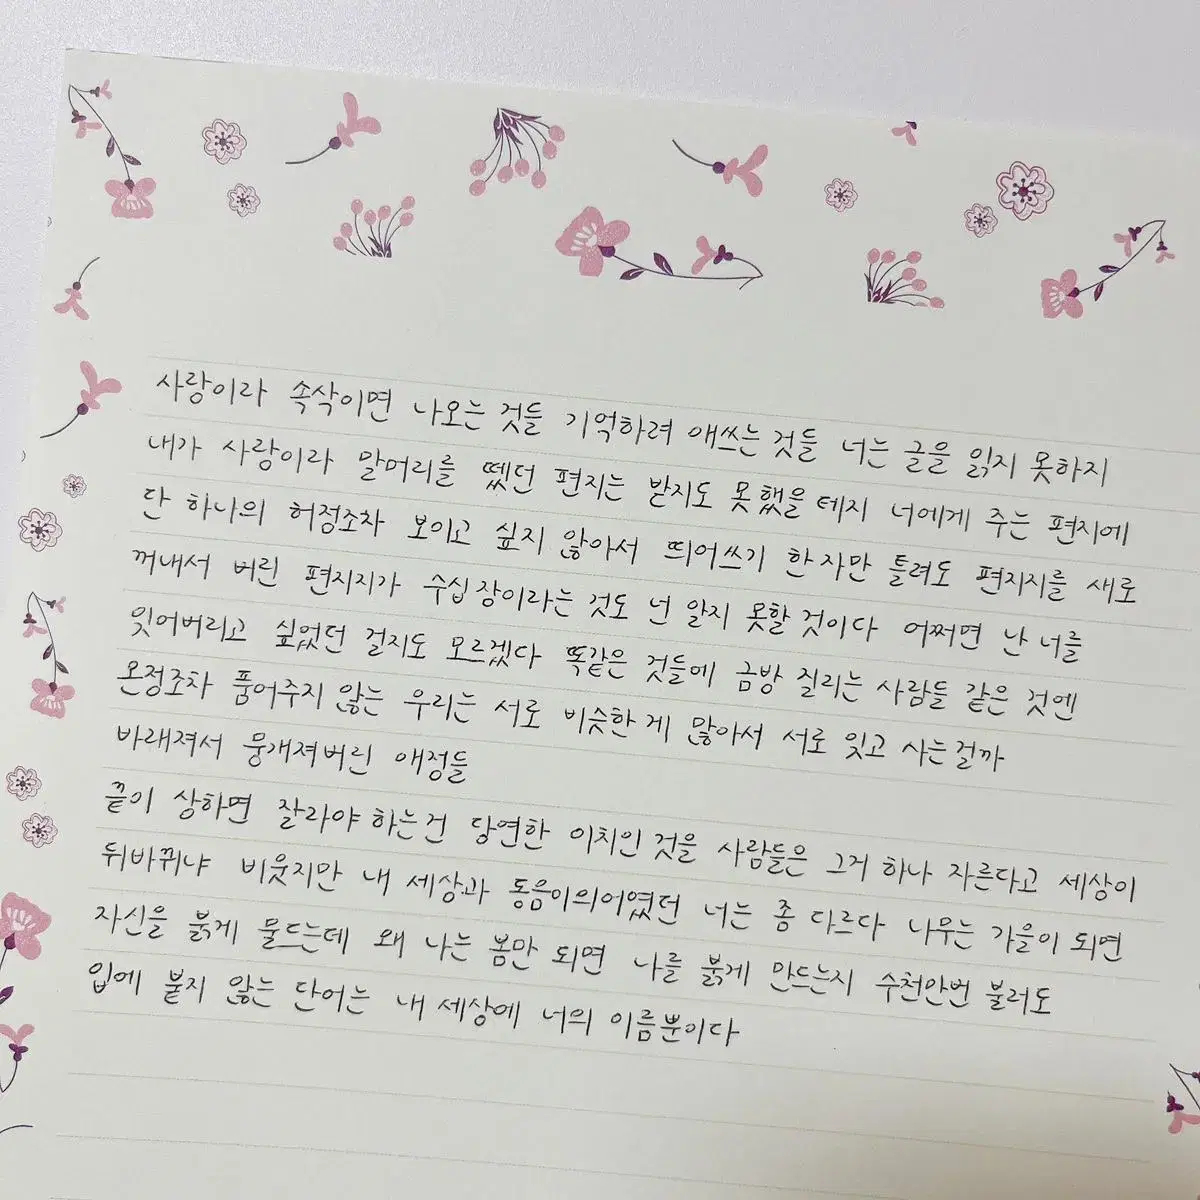 사랑이라 속삭이면 나오는 것들 기억하려 애쓰는 것들 너는 글을 읽지 못하지
내가 사랑이라 말머리를 뗐던 편지는 받지도 못했을 테지 너에게 주는 편지에
단 하나의 허점조차 보이고 싶지 않아서 띄어쓰기 한 자만 틀려도 편지지를 새로
꺼내서 버린 편지지가 수십장이라는 것도 넌 알지 못할 것이다 어쩌면 난 너를
잊어버리고 싶었던 걸지도 모르겠다 똑같은 것들에 금방 질리는 사람들 같은 것엔
온정조차 품어주지 않는 우리는 서로 비슷한게 많아서 서로 잊고 사는걸까
바래져서 뭉개져버린 애정들
끝이 상하면 잘라야 하는건 당연한 이치인 것을 사람들은 그거 하나 자른다고 세상이
뒤바뀌냐 비웃지만 내 세상과 동음이의어였던 너는 좀 다르다 나무는 가을이 되면
자신을 붉게 물드는데 왜 나는 봄만 되면 나를 붉게 만드는지 수천만번 불러도
입에 붙지 않는 단어는 내 세상에 너의 이름뿐이다